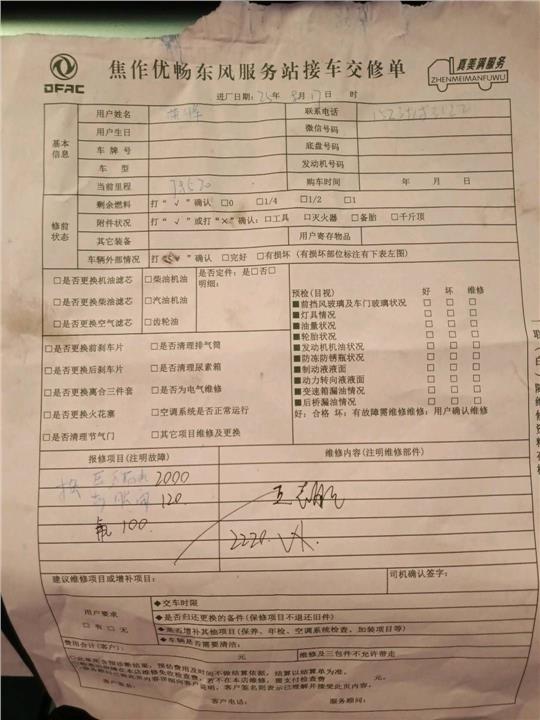 DFAC
焦作优畅东风服务站接车交修单
真美满服务
ZHENMEIMANFUWU
进厂日期: 25年 8月17日 时
基本信息
用户姓名
联系电话
用户生日
微信号码
车牌号
底盘号
车型
发动机号码
当前里程
购车时间 年 月 日
修前状态
剩余燃料 打“√”确认 □0 □1/4 □1/2 □1
附件状况 打“√”或打“×”确认: □工具 □灭火器 □备胎 □千斤顶
其它装备
用户寄存物品
车辆外部情况 打“√”确认 □完好 □有损坏 (有损坏部位标注有下表左图)
□是否更换机油滤芯 □柴油机油
□是否更换柴油滤芯 □汽油机油
□是否更换空气滤芯 □齿轮油
是否定件: 是□否□
明细:
□是否更换前刹车片 □是否清理排气筒
□是否更换后刹车片 □是否清理尿素箱
□是否更换离合三件套 □是否为电气维修
□是否更换火花塞 □空调系统是否正常运行
□是否清理节气门 □其它项目维修及更换
预检(目视) 好 坏 维修
■前挡风玻璃及车门玻璃状况 □ □ □
■灯具情况 □ □ □
■油量状况 □ □ □
■轮胎状况 □ □ □
■发动机机油状况 □ □ □
■防冻防锈瓶状况 □ □ □
■制动液液面 □ □ □
■动力转向液液面 □ □ □
■变速箱漏油情况 □ □ □
■后桥漏油情况 □ □ □
好: 合格 坏: 有故障需维修维修: 用户确认维修
报修项目(注明故障)
维修内容(注明维修部件)
2000
120
氟 100.
2220.
建议维修项目或增补项目:
司机确认签字:
用户要求
□有 □无
◆交车时限
◆是否归还更换的备件(保修项目不退还旧件)
◆是否增补其他项目(保养、年检、空调系统检查、加装项目等)
◆车辆是否需要清洁:
费用合计(客户): 元
维修及三包件不允许带走
客户签名:
客户电话:
服务顾问: